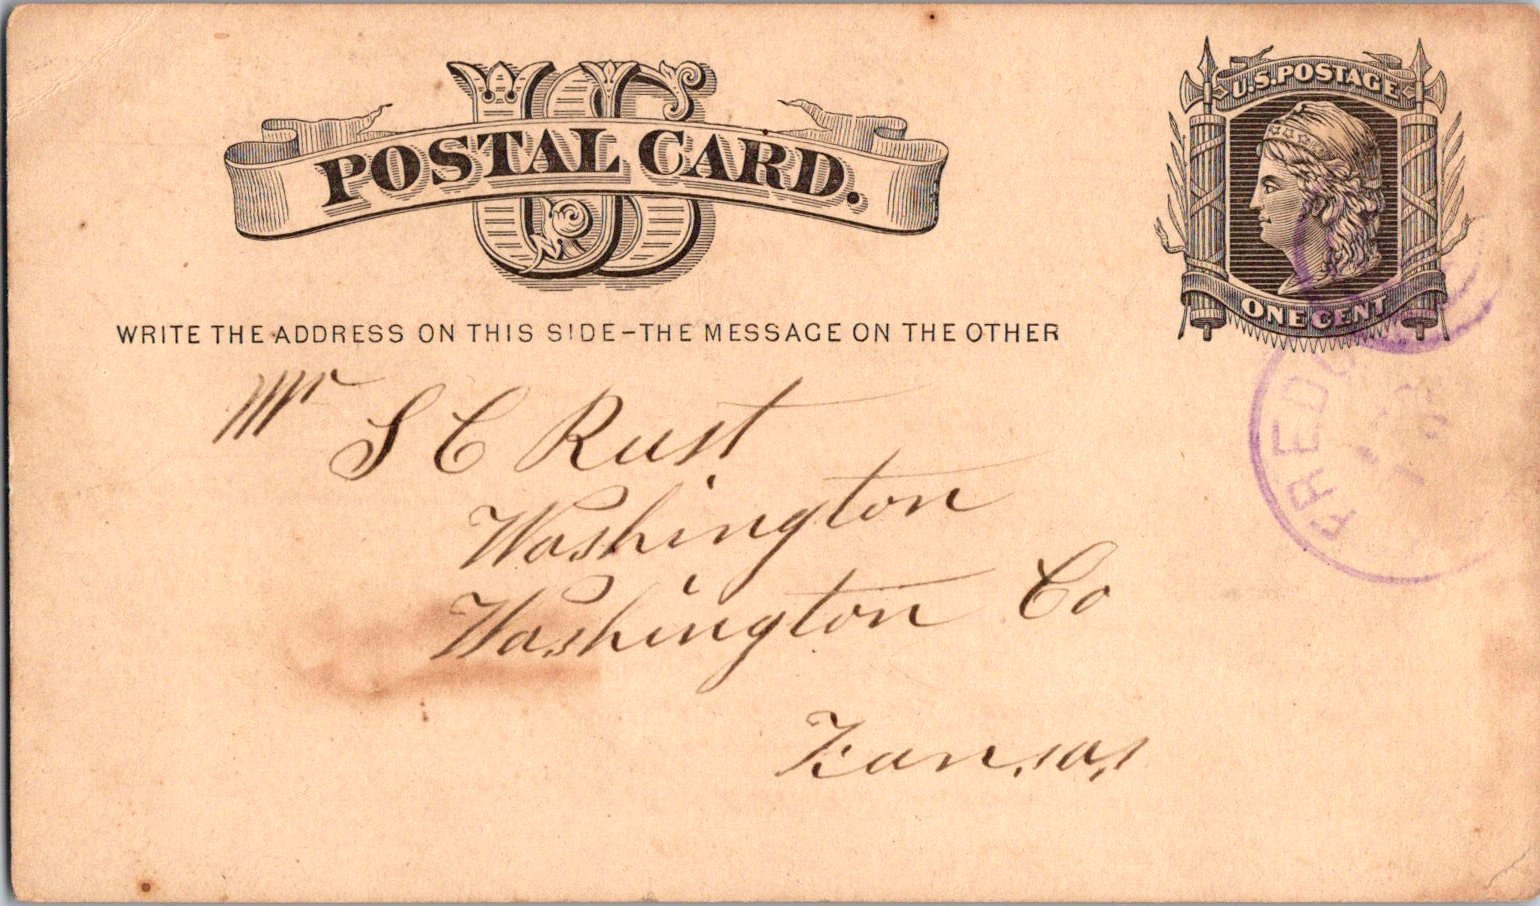 US
POSTAL CARD.
U.S. POSTAGE
ONE CENT
WRITE THE ADDRESS ON THIS SIDE-THE MESSAGE ON THE OTHER
Mr S C Rust
Washington
Washington Co
Kansas